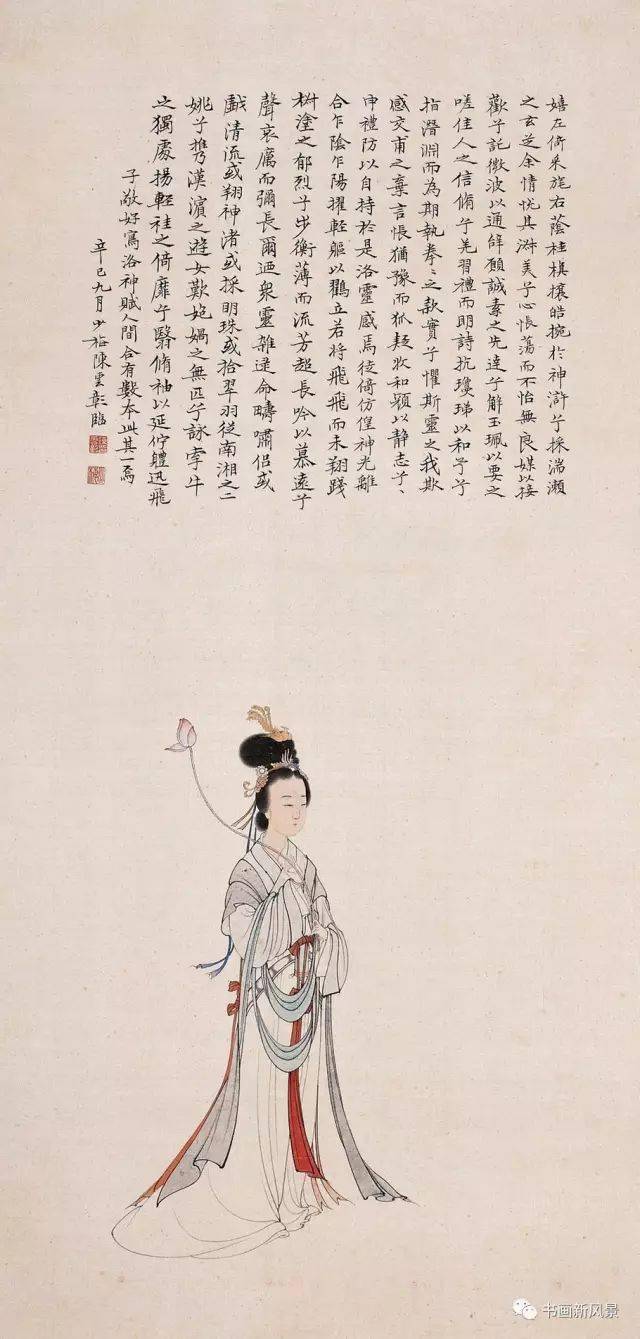 嬉左倚采旄右蔭桂旗攘皓捥於神滸兮採湍瀨
之玄芝余情悅其淑美兮心悵蕩而不怡無良媒以接
歡兮託微波以通辭願誠素之先達兮解玉珮以要之
嗟佳人之信脩兮羌習禮而明詩抗瓊珶以和予兮
指潛淵而為期執拳〻之款實兮懼斯靈之我欺
感交甫之棄言悵猶豫而狐疑收和顏以静志兮〻
申禮防以自持於是洛靈感焉徙倚仿偟神光離
合乍陰乍陽擢輕軀以鶴立若将飛飛而未翔踐
椒塗之郁烈兮步衡薄而流芳超長吟以慕遠兮
聲哀厲而彌長爾迺衆靈雜遝命疇嘯侶或
戲清流或翔神渚或採明珠或拾翠羽從南湘之二
姚兮攜漢濱之遊女歎媧之無匹兮詠牽牛
之獨處揚輕袿之倚靡兮翳脩袖以延佇體迅飛
子敬好寫洛神賦人間合有數本此其一焉
辛巳九月少梅陳雲彰臨
书画新风景